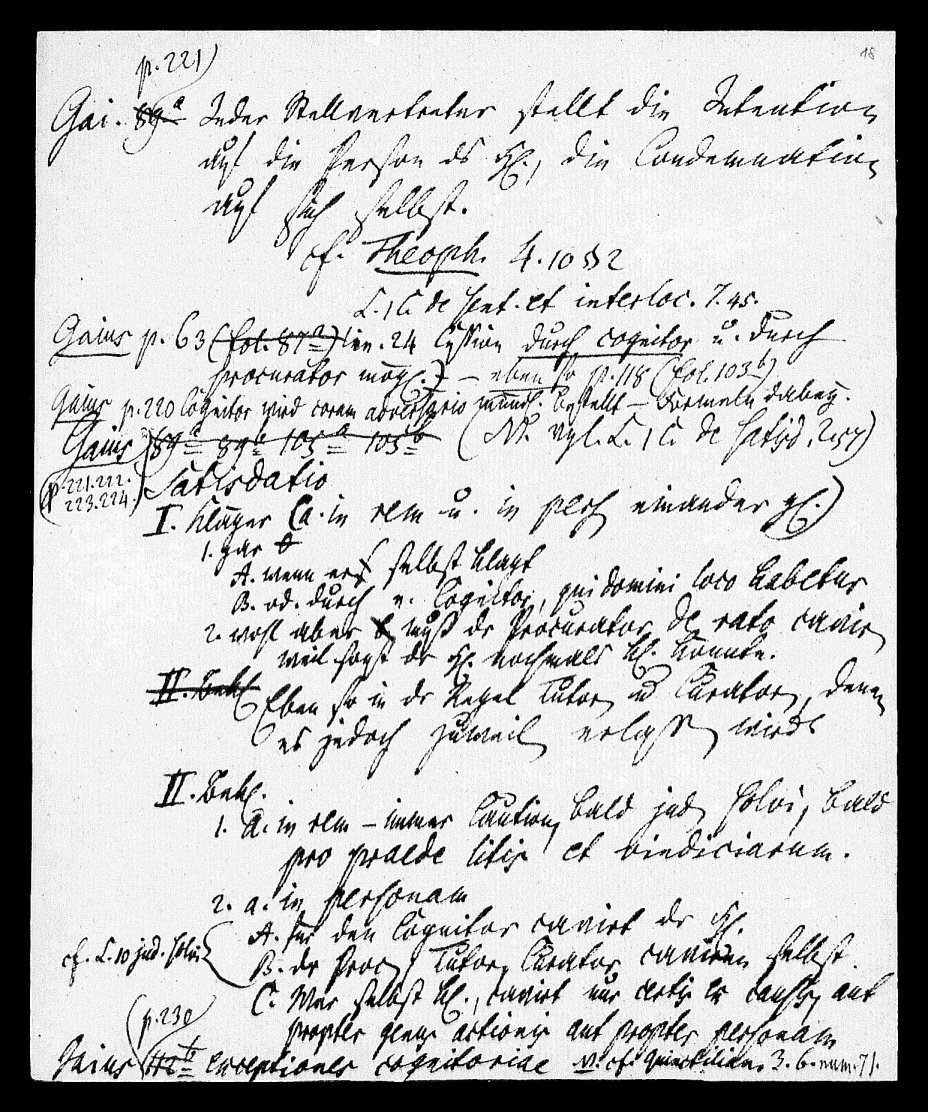 18
p. 221)
Gai. 89a Jeder Stellvertreter stellt die Intention
auf die Person ds Kl., die Condemnation
auf sich selbst.
cf. Theoph. 4. 10 § 2
L. 1 C. de sent. et interloc. 7. 45.
Gaius p. 63 (fol. 87a) lin. 24 Cession durch cognitor u. durch
procurator mögl.) – eben so p. 118 (fol. 103b)
Gaius p. 220 Cognitor wird coram adversario mündl. bestellt – Formeln dabey.
Gaius 89a 89b 105a 105b (N. vgl. L. 1 C. de satisd. 2. 57)
(p. 221. 222.
223. 224.)
Satisdatio
I. Kläger (a. in rem u. in pers. einander gl.)
1. gar
A. wenn er selbst klagt
B. od. durch e. Cognitor, qui domini loco habetur
2. wohl aber muß dr Procurator de rato caviren
weil sonst dr Kl. nochmals kl. könnte.
II. Bekl.
Eben so in dr Regel Tutor u Curator, denen
es jedoch zuweilen erlassen wird
II. Bekl.
1. a. in rem – immer Caution, bald jud. solvi, bald
pro praede litis et vindiciarum.
2. a. in personam
A. für den Cognitor cavirt dr Kl.
cf. L. 10 jud. solvi
B. dr Proc., Tutor, Curator caviren selbst.
C. Wer selbst kl., cavirt nur certis ex causis, aut
propter genus actionis aut propter personam
(p. 230
Gaius exceptiones cognitoriae N. cf. Quinctilian. 3. 6. num. 71.